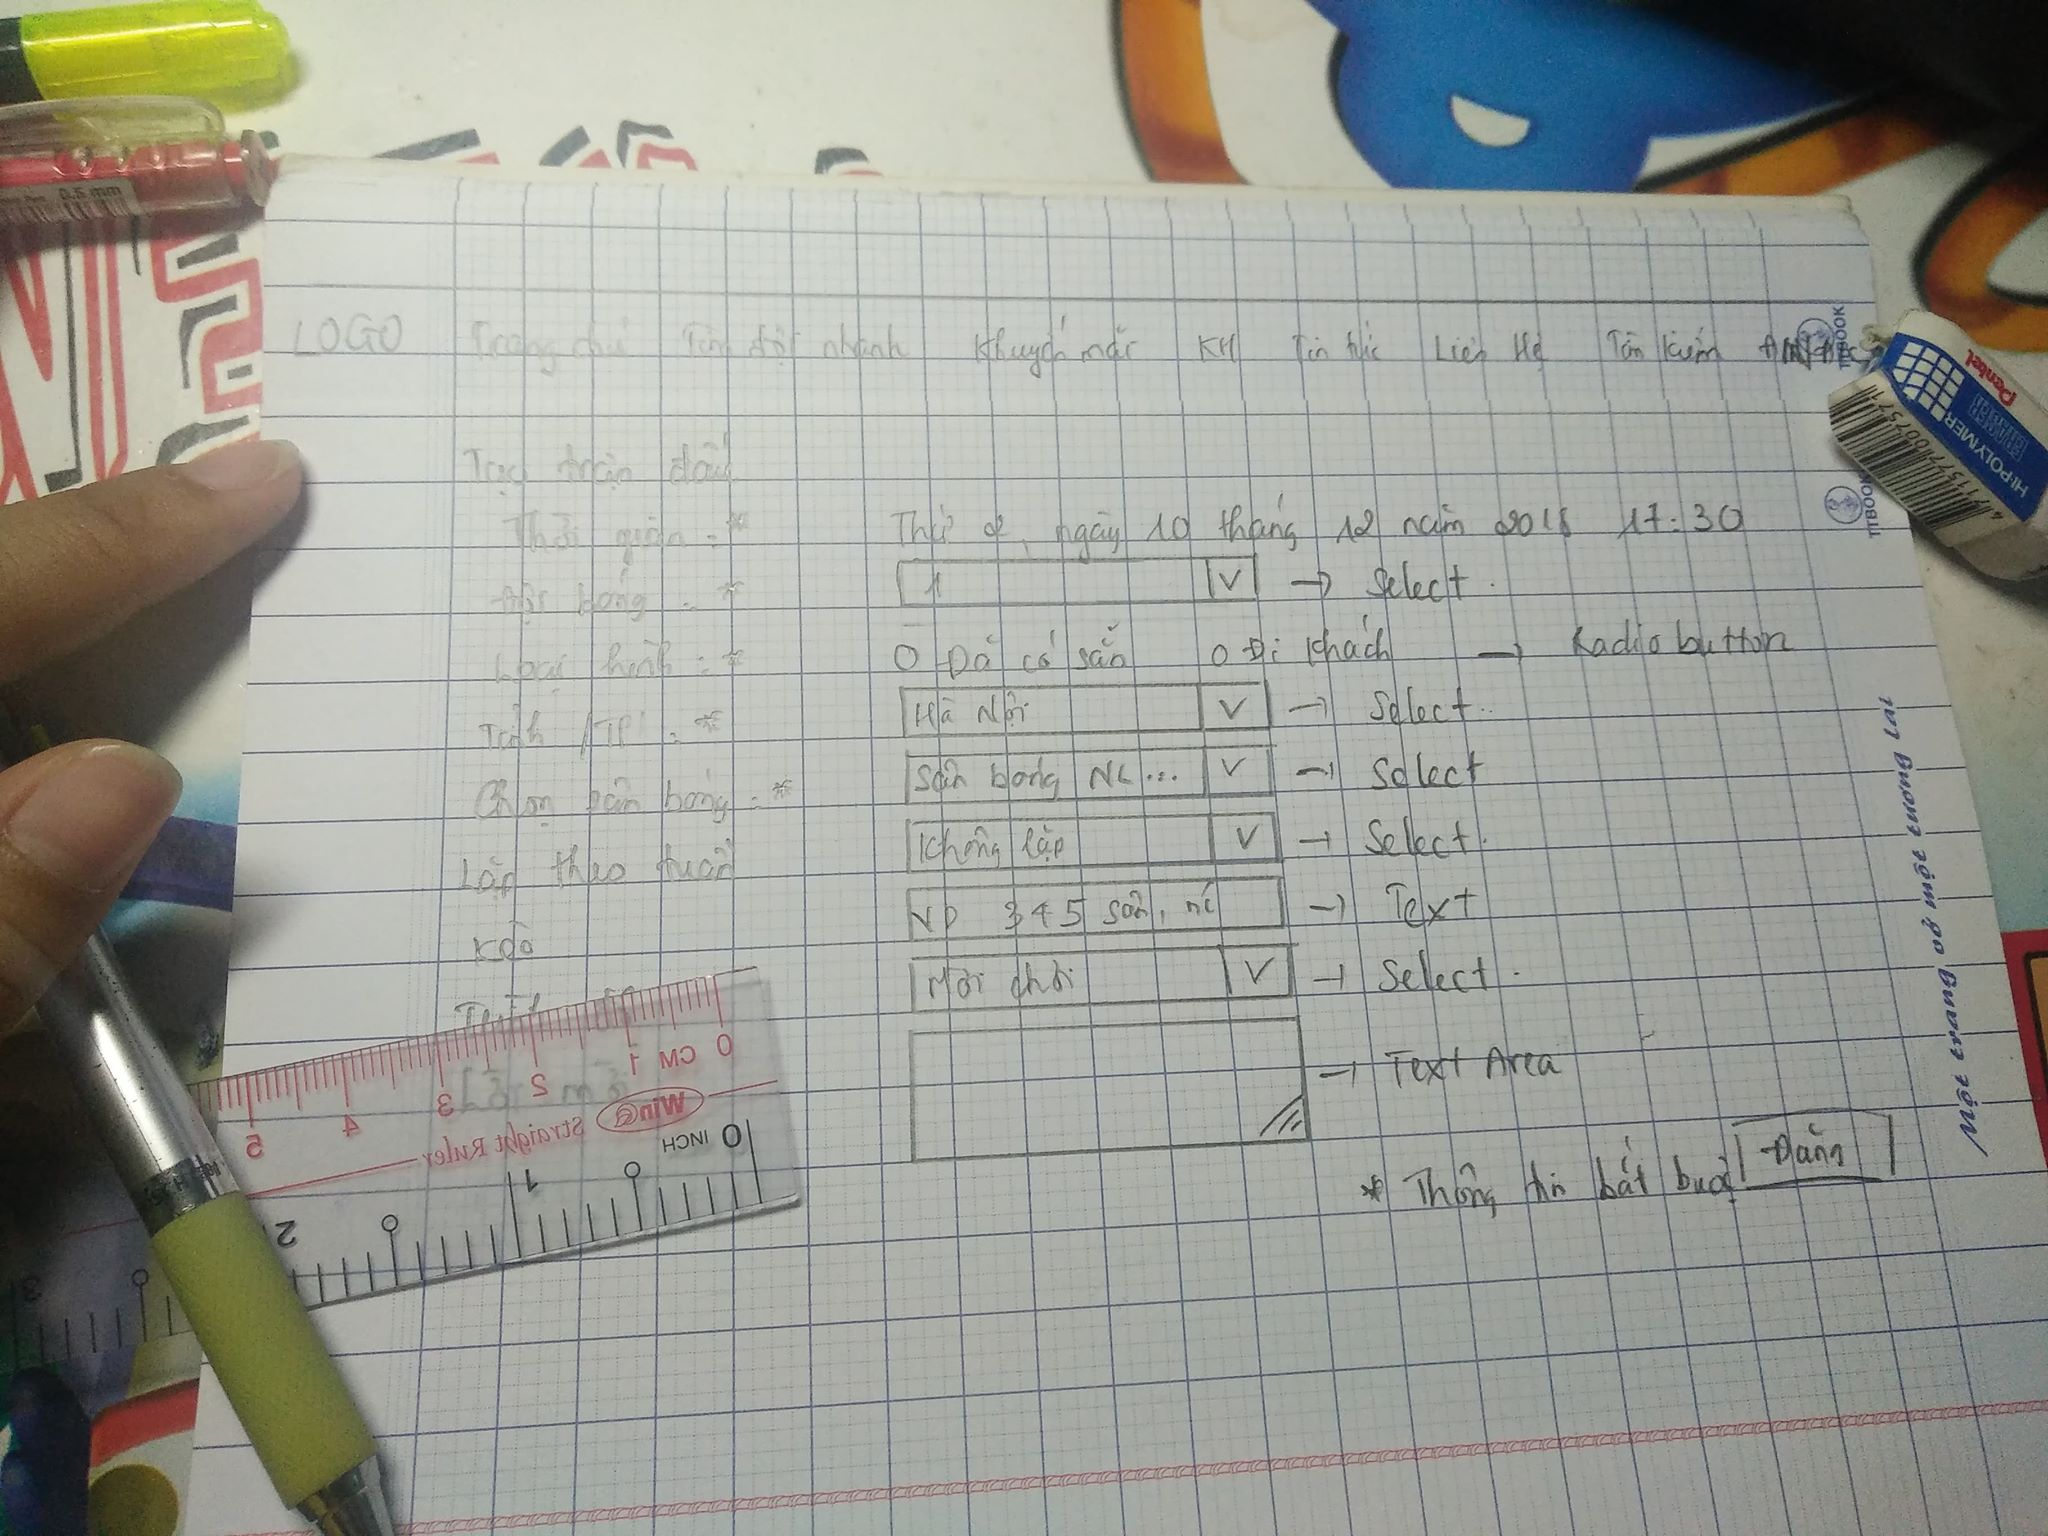 0.5 mm
LOGO Trang chủ Tìm đội nhanh Khuyến mãi KH Tin tức Liên Hệ Tìm kiếm
TBOOK
Pentel
HI-POLYMER
ERASER
Tạo trận đấu
Thời gian : * Thứ 2, ngày 10 tháng 12 năm 2018 17:30
TBOOK
Đội bóng : * V → Select.
Loại hình : * O Đá có sẵn O Đi khách → Radio button
Tỉnh /TP : * Hà Nội V → Select.
Chọn sân bóng : * Sân bóng NL... V → Select
Lặp theo tuần Không lặp V → Select.
Kèo ND 3 4 5 sân, nc → Text
Mới chơi V → Select.
→ Text Area
0 CM 1 2 3 4 5
Win@ Straight Ruler
0 INCH 1 2 3
* Thông tin bắt buộc Đăng
Một trang vở một tương lai